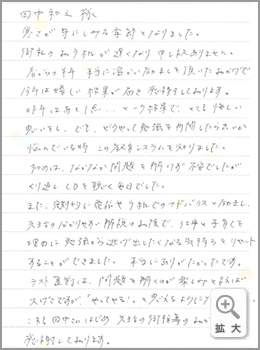 田中和之 様
寒さが身にしみる季節となりました。
御礼のお手紙が遅くなり申し訳ありません。
春からの半年 本当に温かい励ましを頂いたおかげで
今年は嬉しい結果が出て感謝しております。
昨年はあと1点…という結果で、とても悔しい
思いをし、でも、どうやって勉強を再開したら良いか
悩んでいる時 このシステムを知りました。
初めは、なかなか問題を解けず不安でしたが
くり返しCDを聴く毎日でした。
また、定期的に電話や手紙でのアドバイスと励まし、
先生のわかりやすい解説のお陰で、仕事と子育てを
理由に勉強から逃げ出したくなる気持ちをリセット
することができました。本当にありがたかったです。
テスト直前は、問題を解くのが楽しみと言えば
大げさですが、"やってやる。"と思えるように
これも田中さんはじめ 先生の御指導のお
感謝しております。
拡大